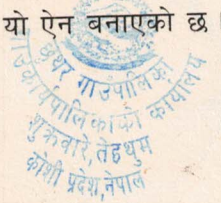 यो ऐन बनाएको छ
छथर गाउँपालिका
गाउँ कार्यपालिकाको कार्यालय
शुक्रबारे, तेह्रथुम
कोशी प्रदेश, नेपाल